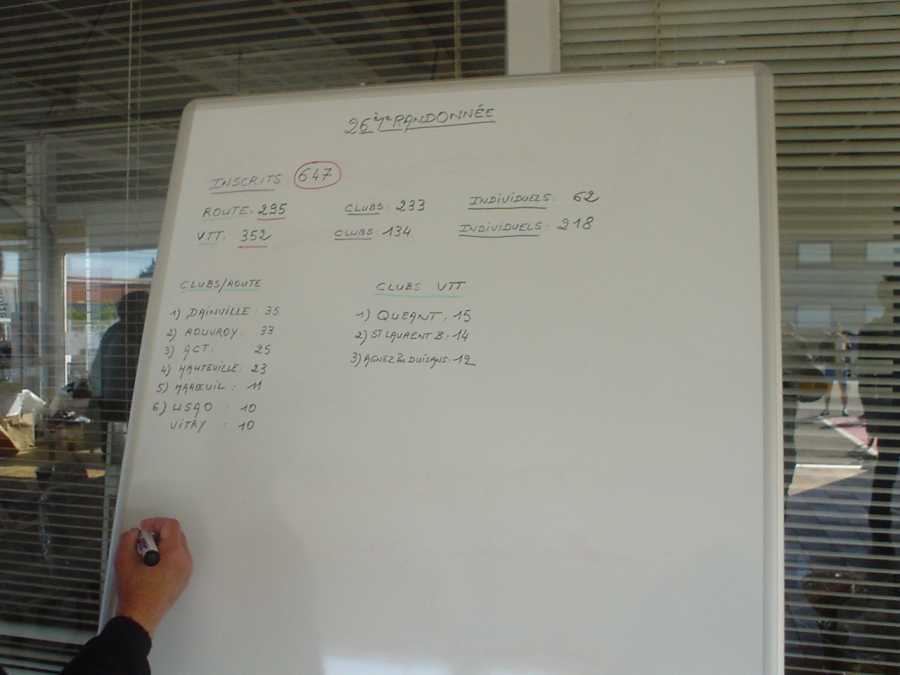 26ème RANDONNÉE
INSCRITS : 647
ROUTE : 295 CLUBS : 233 INDIVIDUELS : 62
VTT : 352 CLUBS : 134 INDIVIDUELS : 218
CLUBS/ROUTE
1) DAINVILLE : 35
2) ROUVROY : 33
3) ACT. 25
4) HAUTEVILLE : 23
5) MAROEUIL : 11
6) USAO : 10
VITRY : 10
CLUBS VTT
1) QUEANT : 15
2) ST LAURENT B : 14
3) AGNEZ les DUISANS : 12